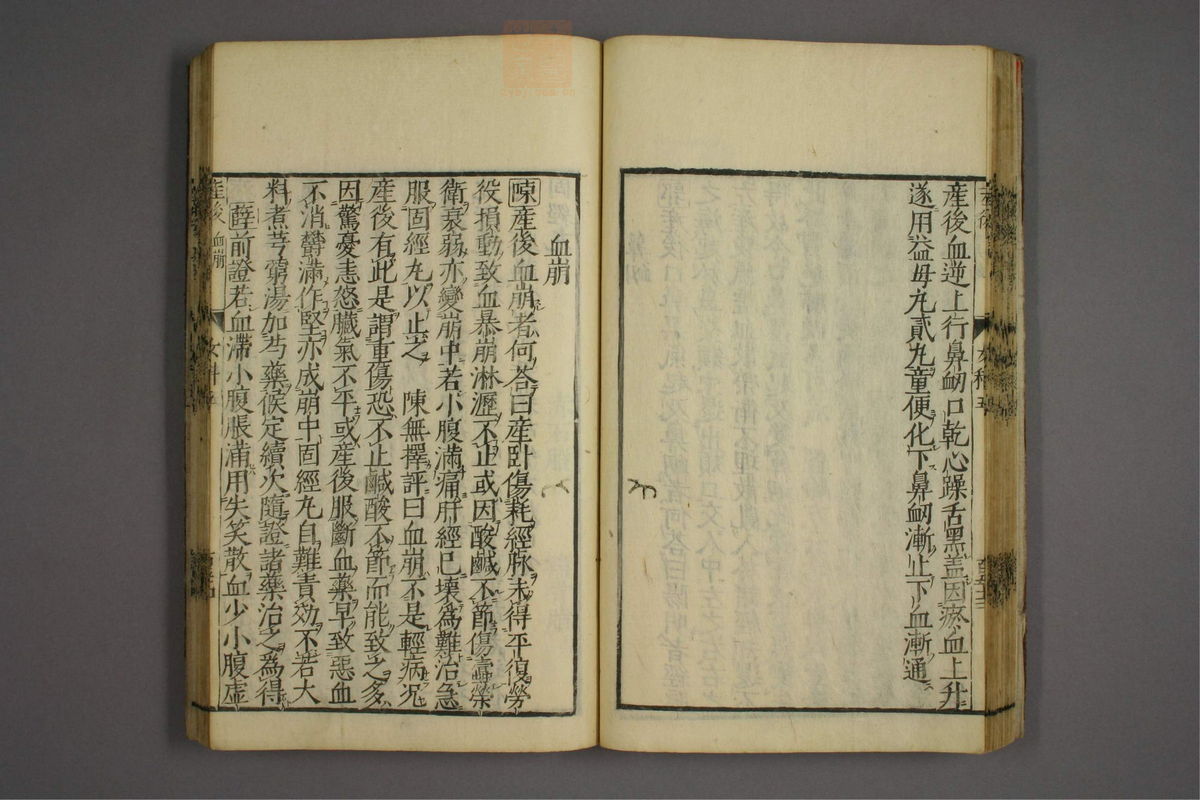 產後血逆上行鼻衂口乾心躁舌黑蓋因瘀血上升
遂用益母丸貳丸童便化下鼻衂漸止下血漸通
血崩
陳產後血崩者何答曰產卧傷耗經脉未得平復勞
役損動致血暴崩淋瀝不止或因酸鹹不節傷蠹榮
衛衰弱亦變崩中若小腹滿痛肝經已壞為難治急
服固經丸以止之 陳無擇評曰血崩不是輕病况
產後有此是謂重傷恐不止鹹酸不節而能致之多
因驚憂恚怒臟氣不平或產後服斷血藥早致惡血
不消鬱滿作堅亦成崩中固經丸自難責効不若大
料煮芎藭湯加芍藥候定續次隨證諸藥治之為得
薛前證若血滯小腹脹滿用失笑散血少小腹虛
產後 血崩
女科五
產後
女科五